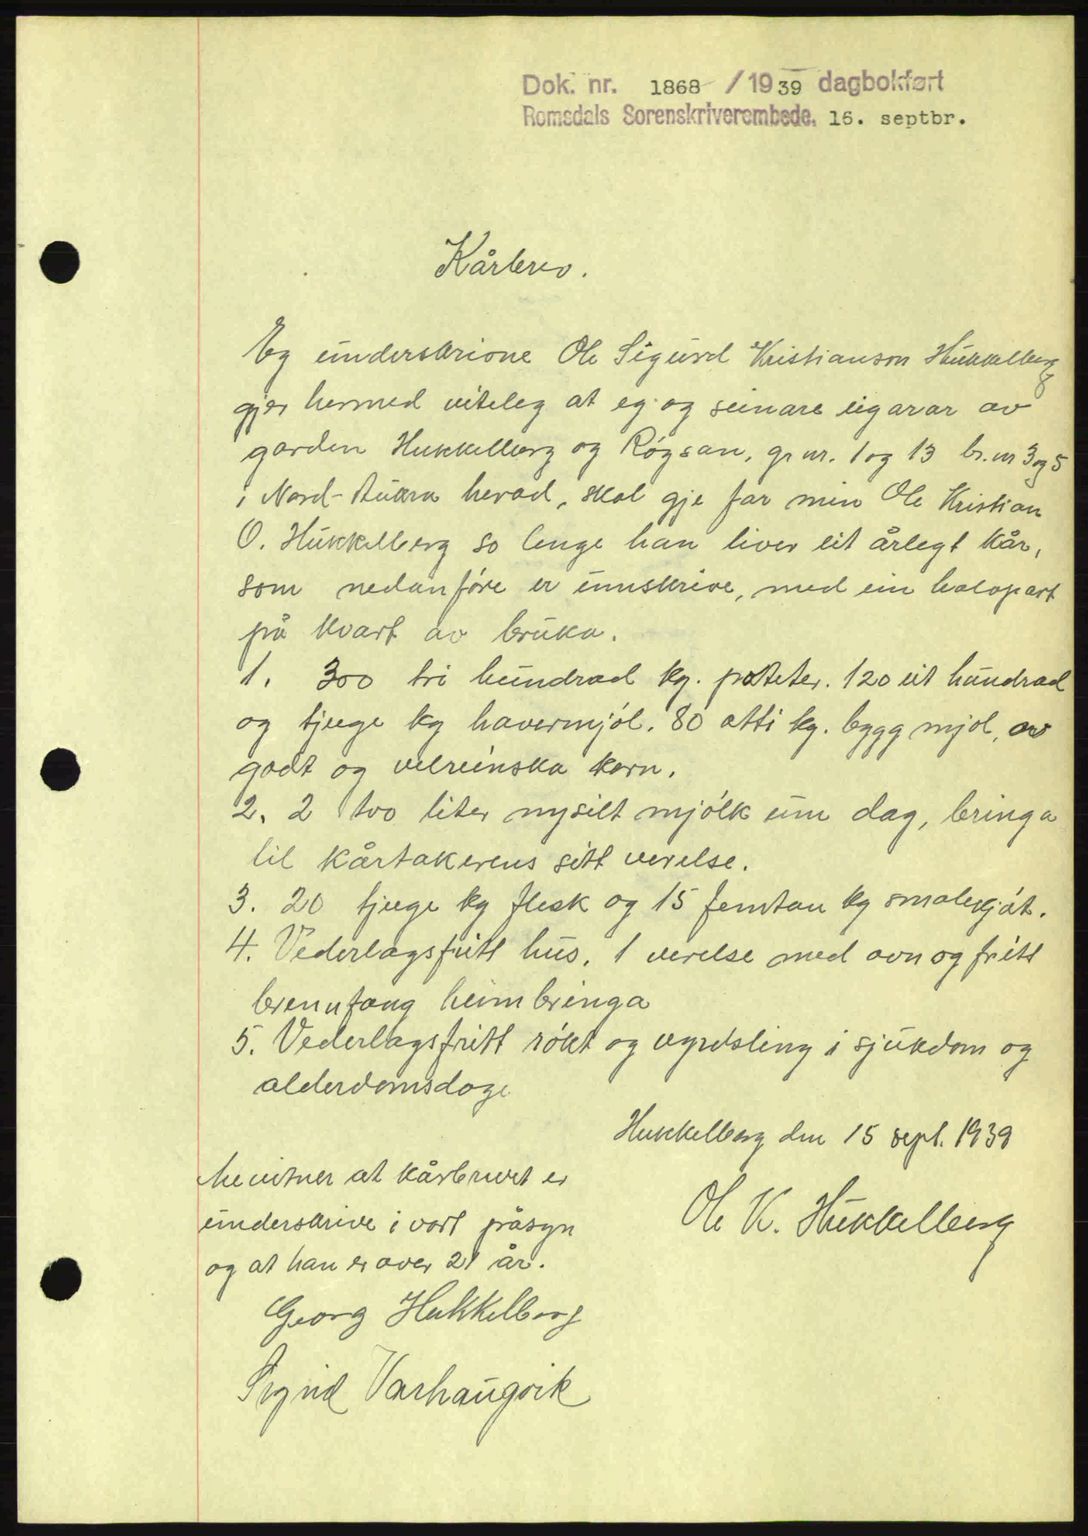 Dok. nr. 1868 / 1939 dagbokført
Romsdals Sorenskriverembede, 16. septbr.
Kårbrev.
Eg underskrivne Ole Sigurd Kristianson Hukkelberg
gjer hermed viteleg at eg og seinare eigarar av
garden Hukkelberg og Røgsan, gr nr. 1 og 13 br. nr 3 og 5
i Nord-Aukra herad, skal gje far min Ole Kristian
O. Hukkelberg so lenge han liver eit årlegt kår,
som nedanføre er innskrive, med ein halvpart
på kvart av bruka.
1. 300 tri hundrad kg. poteter. 120 eit hundrad
og tjuge kg havermjøl. 80 atti kg. bygg mjøl, av
godt og velreinska korn.
2. 2 tvo liter nysilt mjølk um dag, bringa
til kårtakerens sitt verelse.
3. 20 tjuge kg flesk og 15 femtan kg smalekjøt.
4. Vederlagsfritt hus, 1 verelse med ovn og fritt
brennfang heimbringa
5. Vederlagsfritt røkt og vyrdsling i sjukdom og
alderdomsdage
Hukkelberg den 15 sept. 1939
Me vitner at kårbrevet er
underskrive i vort påsyn
og at han er over 21 år.
Ole K. Hukkelberg
Georg Hukkelberg
Sigrid Varhaugvik